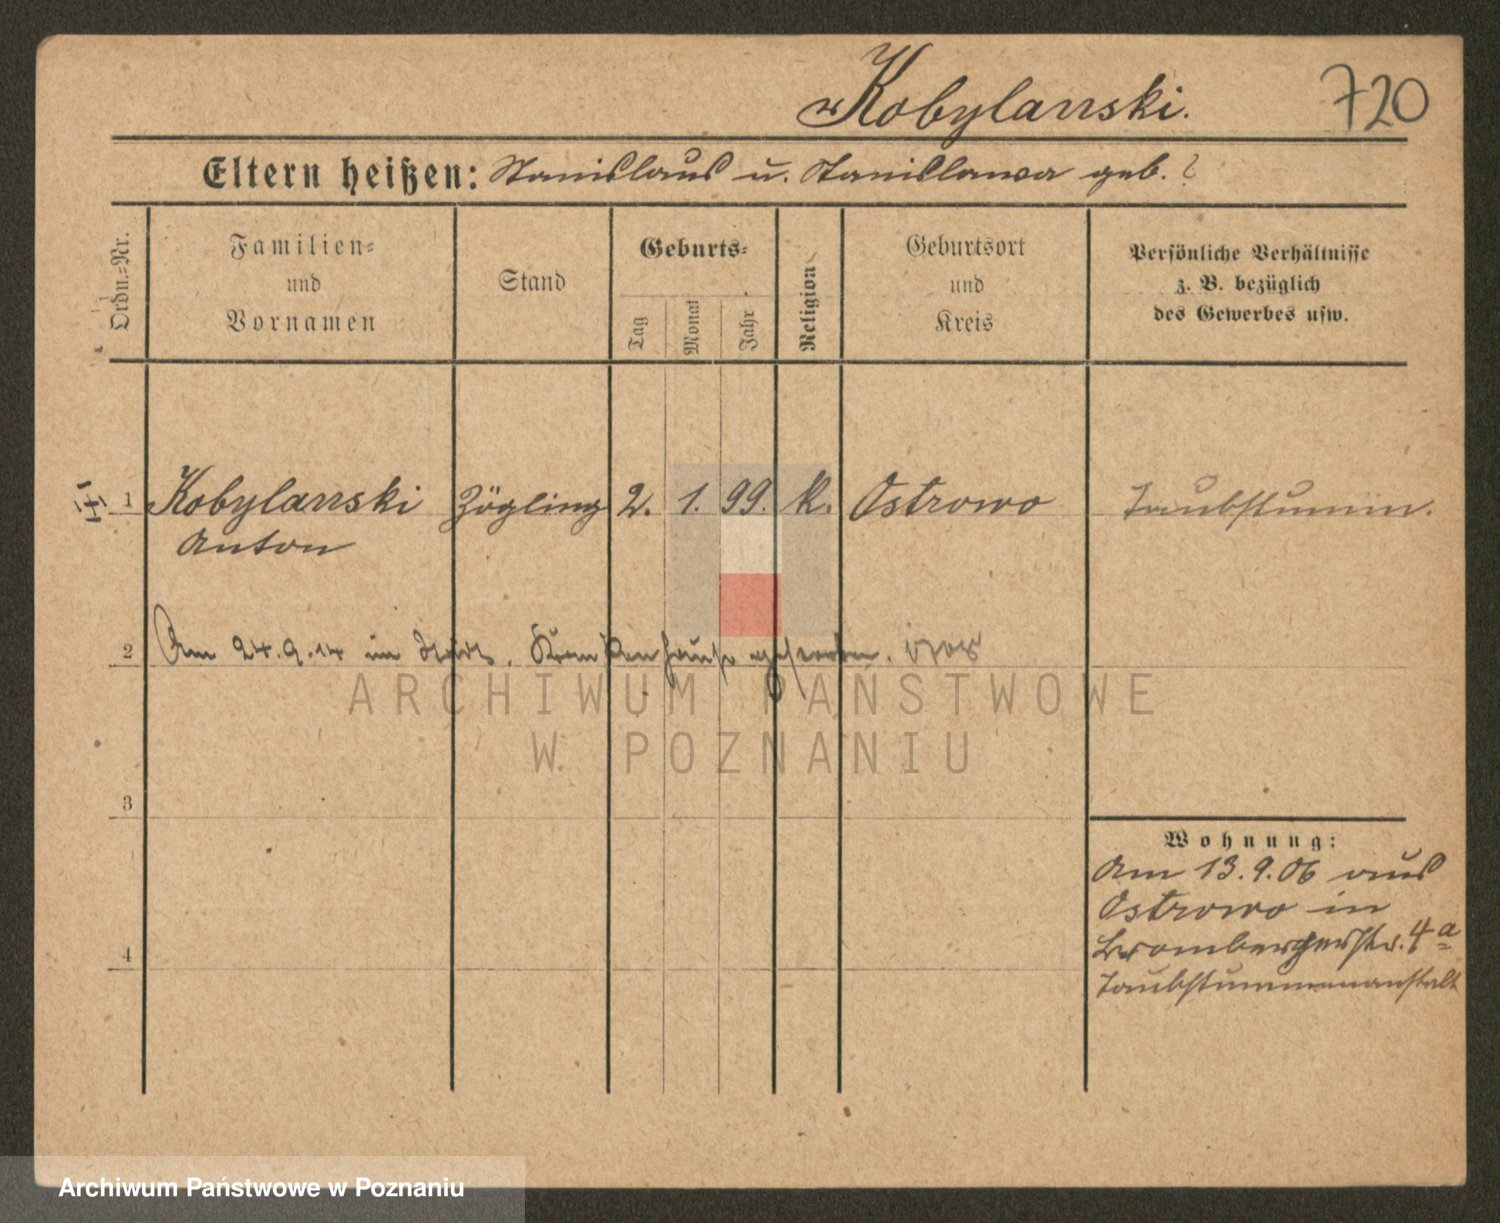 Kobylanski.
720
Eltern heißen: Stanislaus u. Stanislawa geb. ?
Ordn.-Nr.
Familien-
und
Vornamen
Stand
Geburts-
Tag
Monat
Jahr
Religion
Geburtsort
und
Kreis
Persönliche Verhältnisse
z. B. bezüglich
des Gewerbes usw.
1 Kobylanski Zögling 2. 1. 99. k. Ostrowo Taubstumm.
Anton
2 Am 24.9.14 im Städt. Krankenhause gestorben.
ARCHIWUM PAŃSTWOWE
W POZNANIU
3
Wohnung:
Am 13.9.06 aus
Ostrowo in
Brombergerstr. 4a
Taubstummenanstalt
4
Archiwum Państwowe w Poznaniu